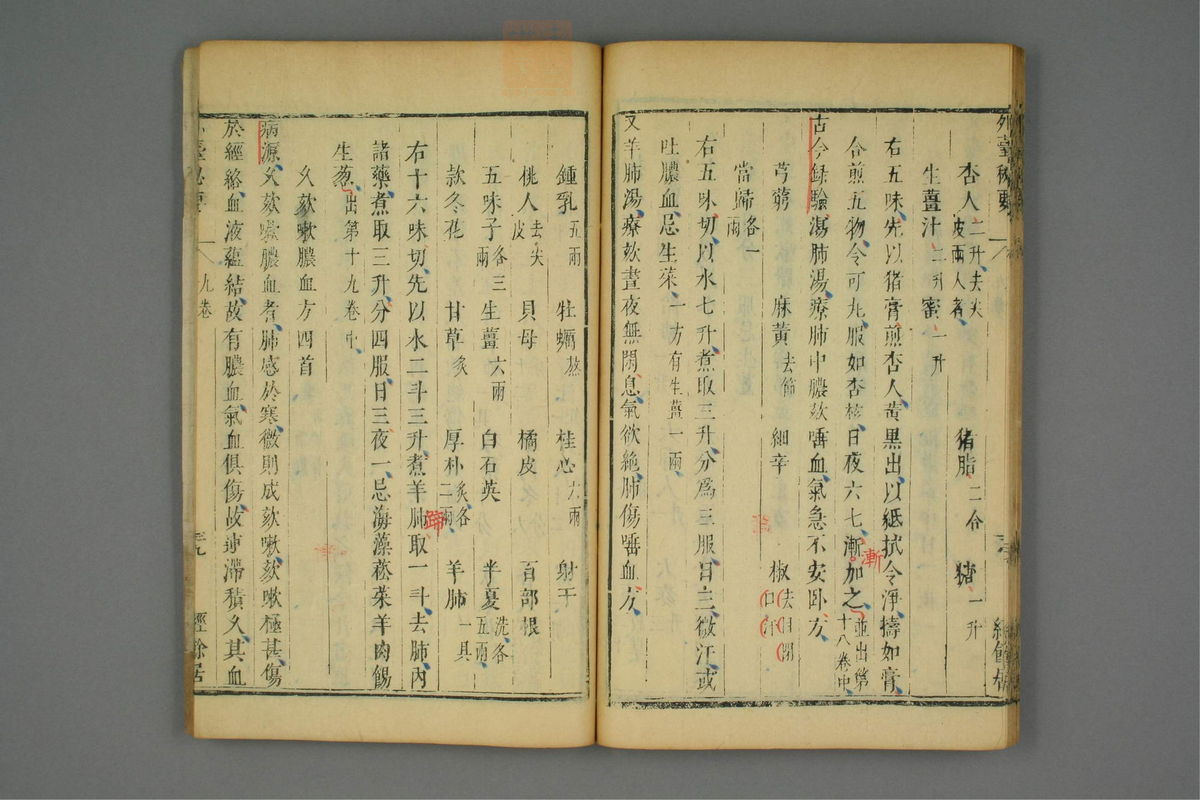 外臺秘要
杏人二升去尖皮兩人者 猪脂二合 猪一升
生薑汁二升蜜一升
右五味先以猪膏煎杏人黄黒出以紙拭令淨擣如膏
合煎五物令可丸服如杏核日夜六七漸加之並出第十八卷中
漸
古今録驗瀉肺湯療肺中膿欬唾血氣急不安卧方
芎藭 麻黄去節 細辛 椒去目閉口汗
當歸各一兩
右五味切以水七升煮取三升分爲三服日三微汗或
吐膿血忌生菜一方有生薑一兩
又羊肺湯療欬晝夜無閑息氣欲絶肺傷唾血方
鍾乳五兩 牡蠣熬 桂心六兩 射干
桃人去尖皮 貝母 橘皮 百部根
五味子各三兩 生薑六兩 白石英 半夏洗各五兩
款冬花 甘草炙 厚朴炙各二兩 羊肺一具
右十六味切先以水二斗三升煮羊肺取一斗去肺内
諸藥煮取三升分四服日三夜一忌海藻菘菜羊肉餳
生葱出第十九卷中
久欬嗽膿血方四首
病源久欬嗽膿血者肺感於寒微則成欬嗽欬嗽極甚傷
於經絡血液蘊結故有膿血氣血俱傷故連滯積久其血
九卷
經餘居